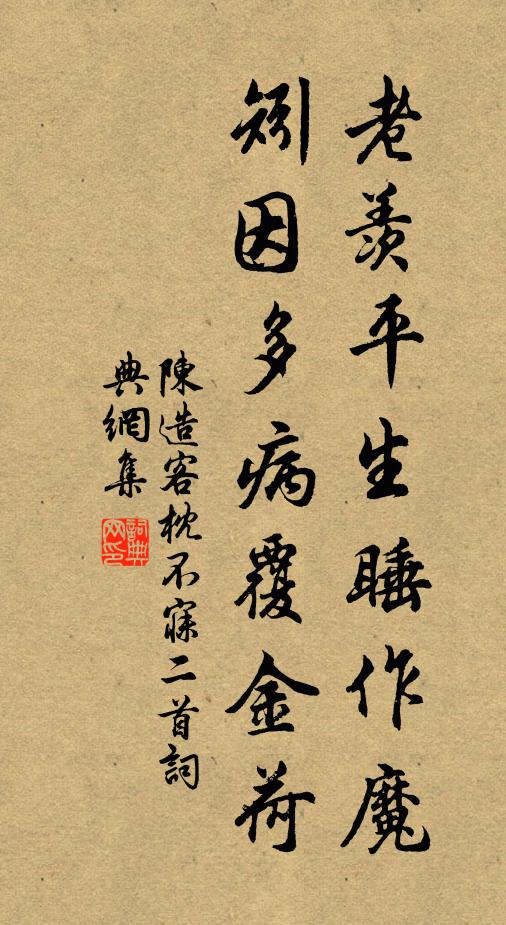 老羨平生睡作魔
矧因多病覆金荷
陳造客枕不寐二首詞
典網集
詞典
网印